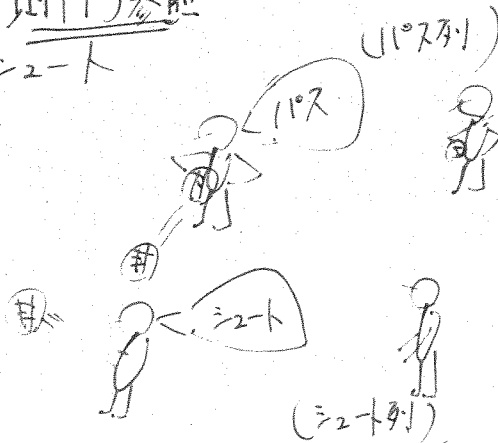 シュート
(パス列)
パス
シュート
(シュート列)